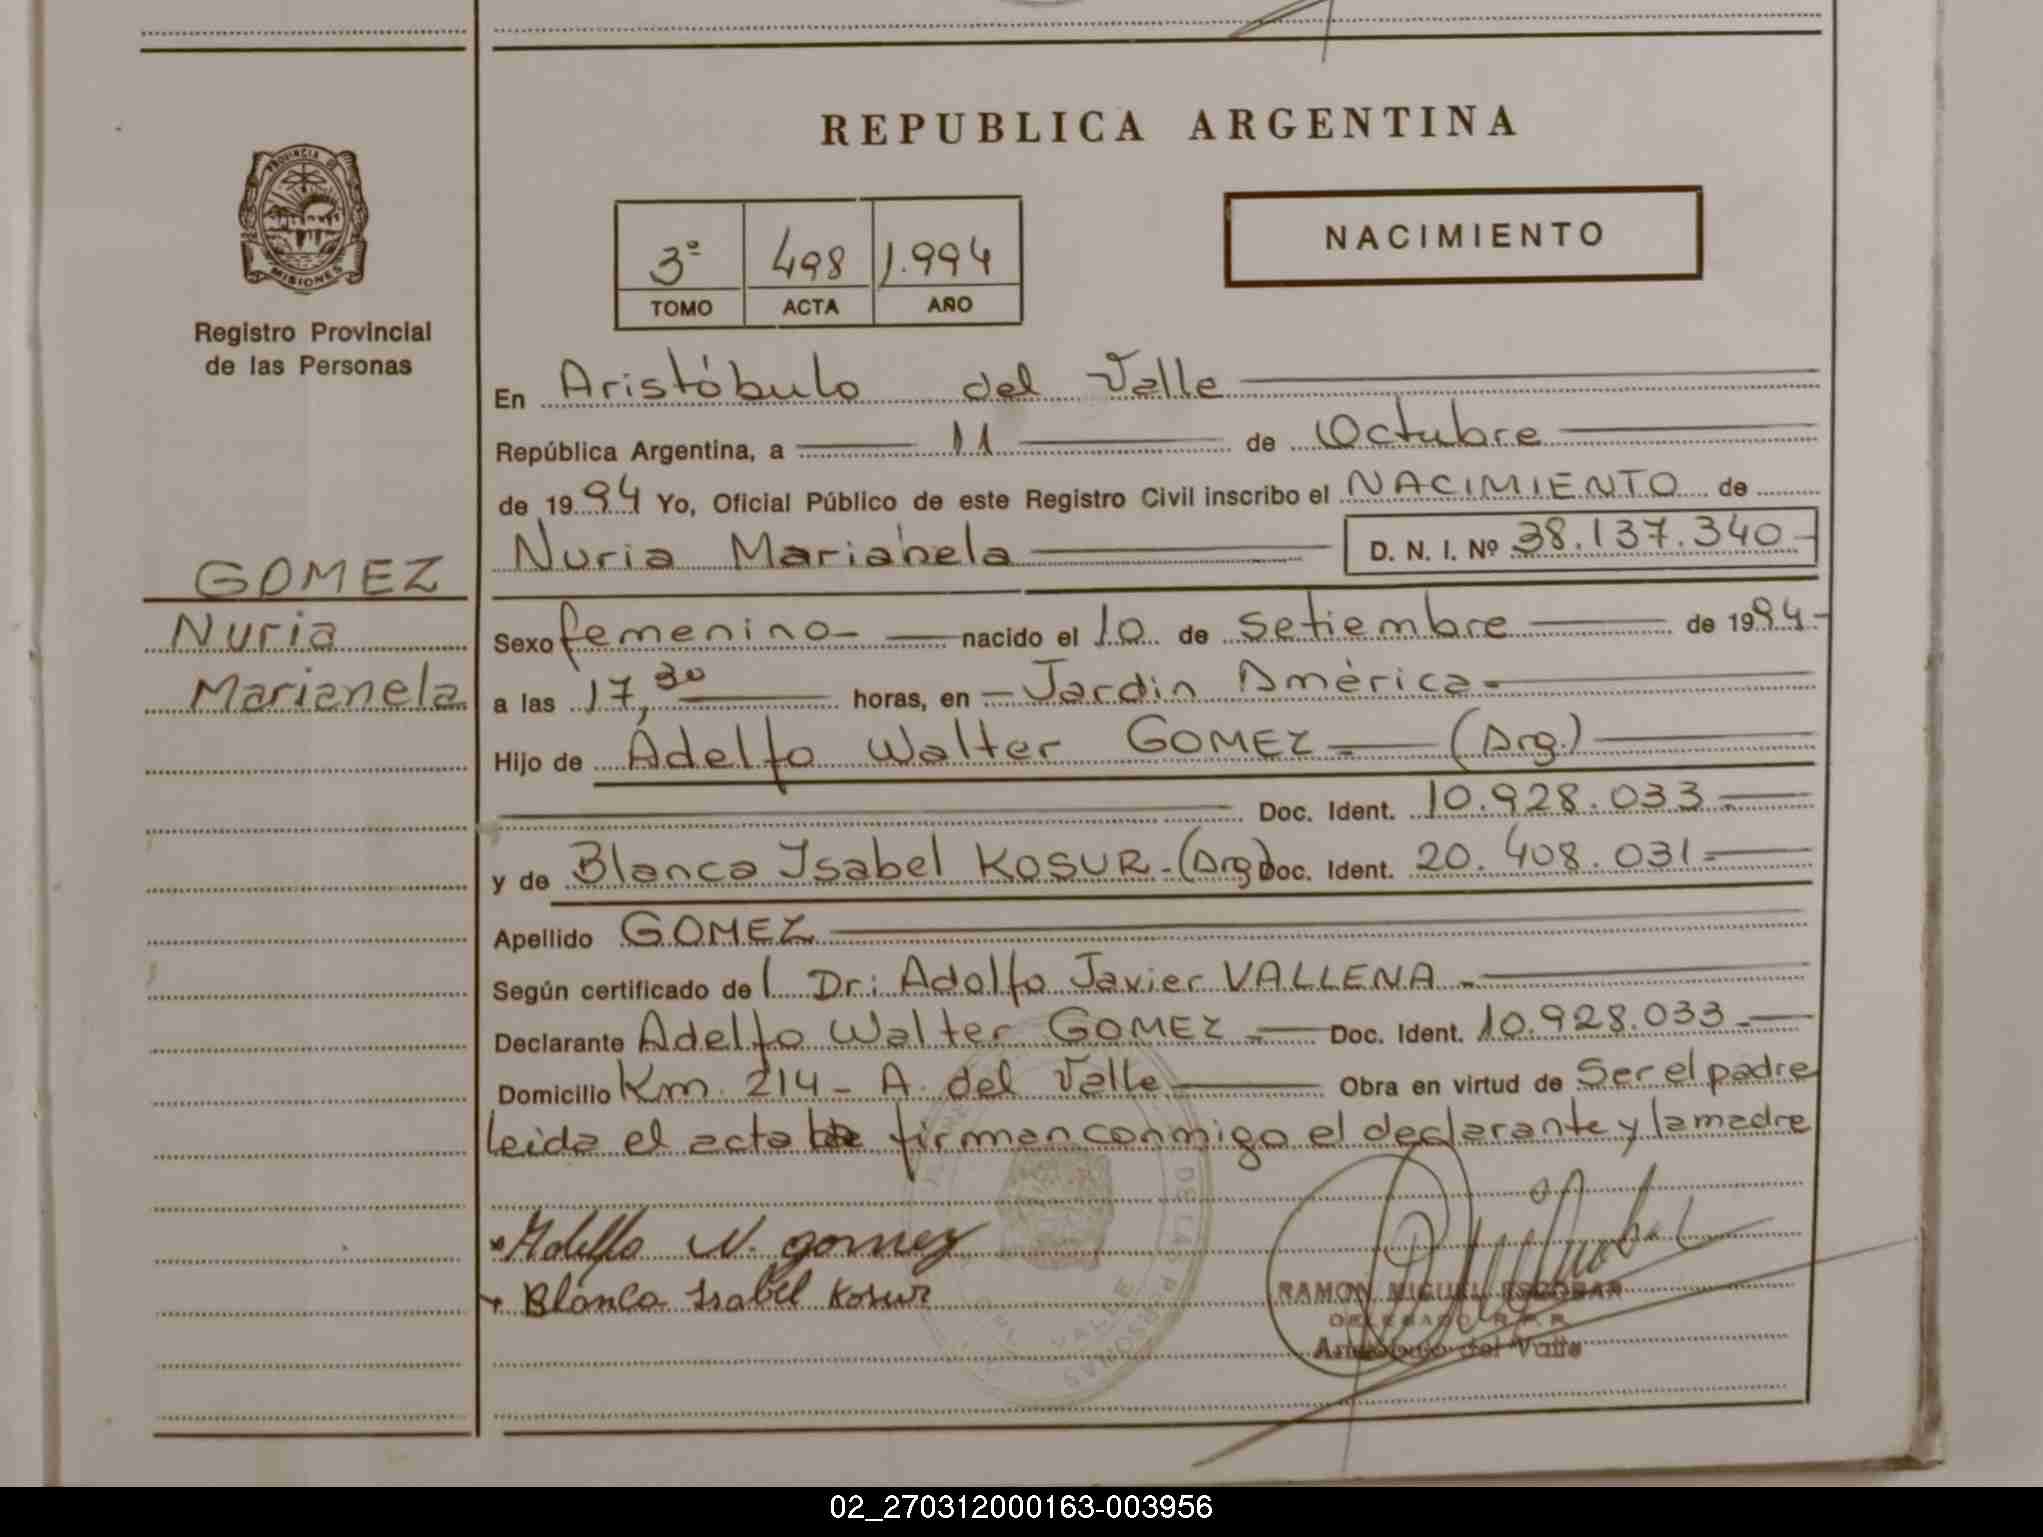 REPUBLICA ARGENTINA
PROVINCIA DE
MISIONES
Registro Provincial
de las Personas
3º 498 1.994
TOMO ACTA AÑO
NACIMIENTO
En Aristóbulo del Valle
República Argentina, a 11 de Octubre
de 1994 Yo, Oficial Público de este Registro Civil inscribo el NACIMIENTO de
Nuria Marianela D. N. I. Nº 38.137.340-
GOMEZ
Nuria
Marianela
Sexo femenino- nacido el 10 de Setiembre de 1994-
a las 17,30 horas, en - Jardin América-
Hijo de Adelfo Walter GOMEZ - (Arg.)
Doc. Ident. 10.928.033 -
y de Blanca Ysabel KOSUR-(Arg) Doc. Ident. 20.408.031-
Apellido GOMEZ
Según certificado de l Dr: Adolfo Javier VALLENA -
Declarante Adelfo Walter GOMEZ - Doc. Ident. 10.928.033-
Domicilio Km. 214 - A. del Valle Obra en virtud de Ser el padre
leida el acta firman conmigo el declarante y la madre
Adelfo W. gomez
Blanca Isabel Kosur
DE LAS PERSONAS
DEL VALLE
RAMON MIGUEL ESCOBAR
DELEGADO R.P.P.
Aristóbulo del Valle
02_270312000163-003956